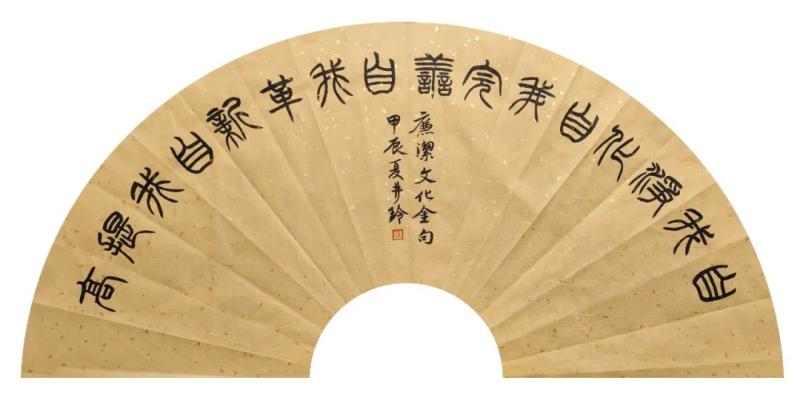 自我淨化自我完善自我革新自我提高
廉潔文化金句
甲辰夏井玲